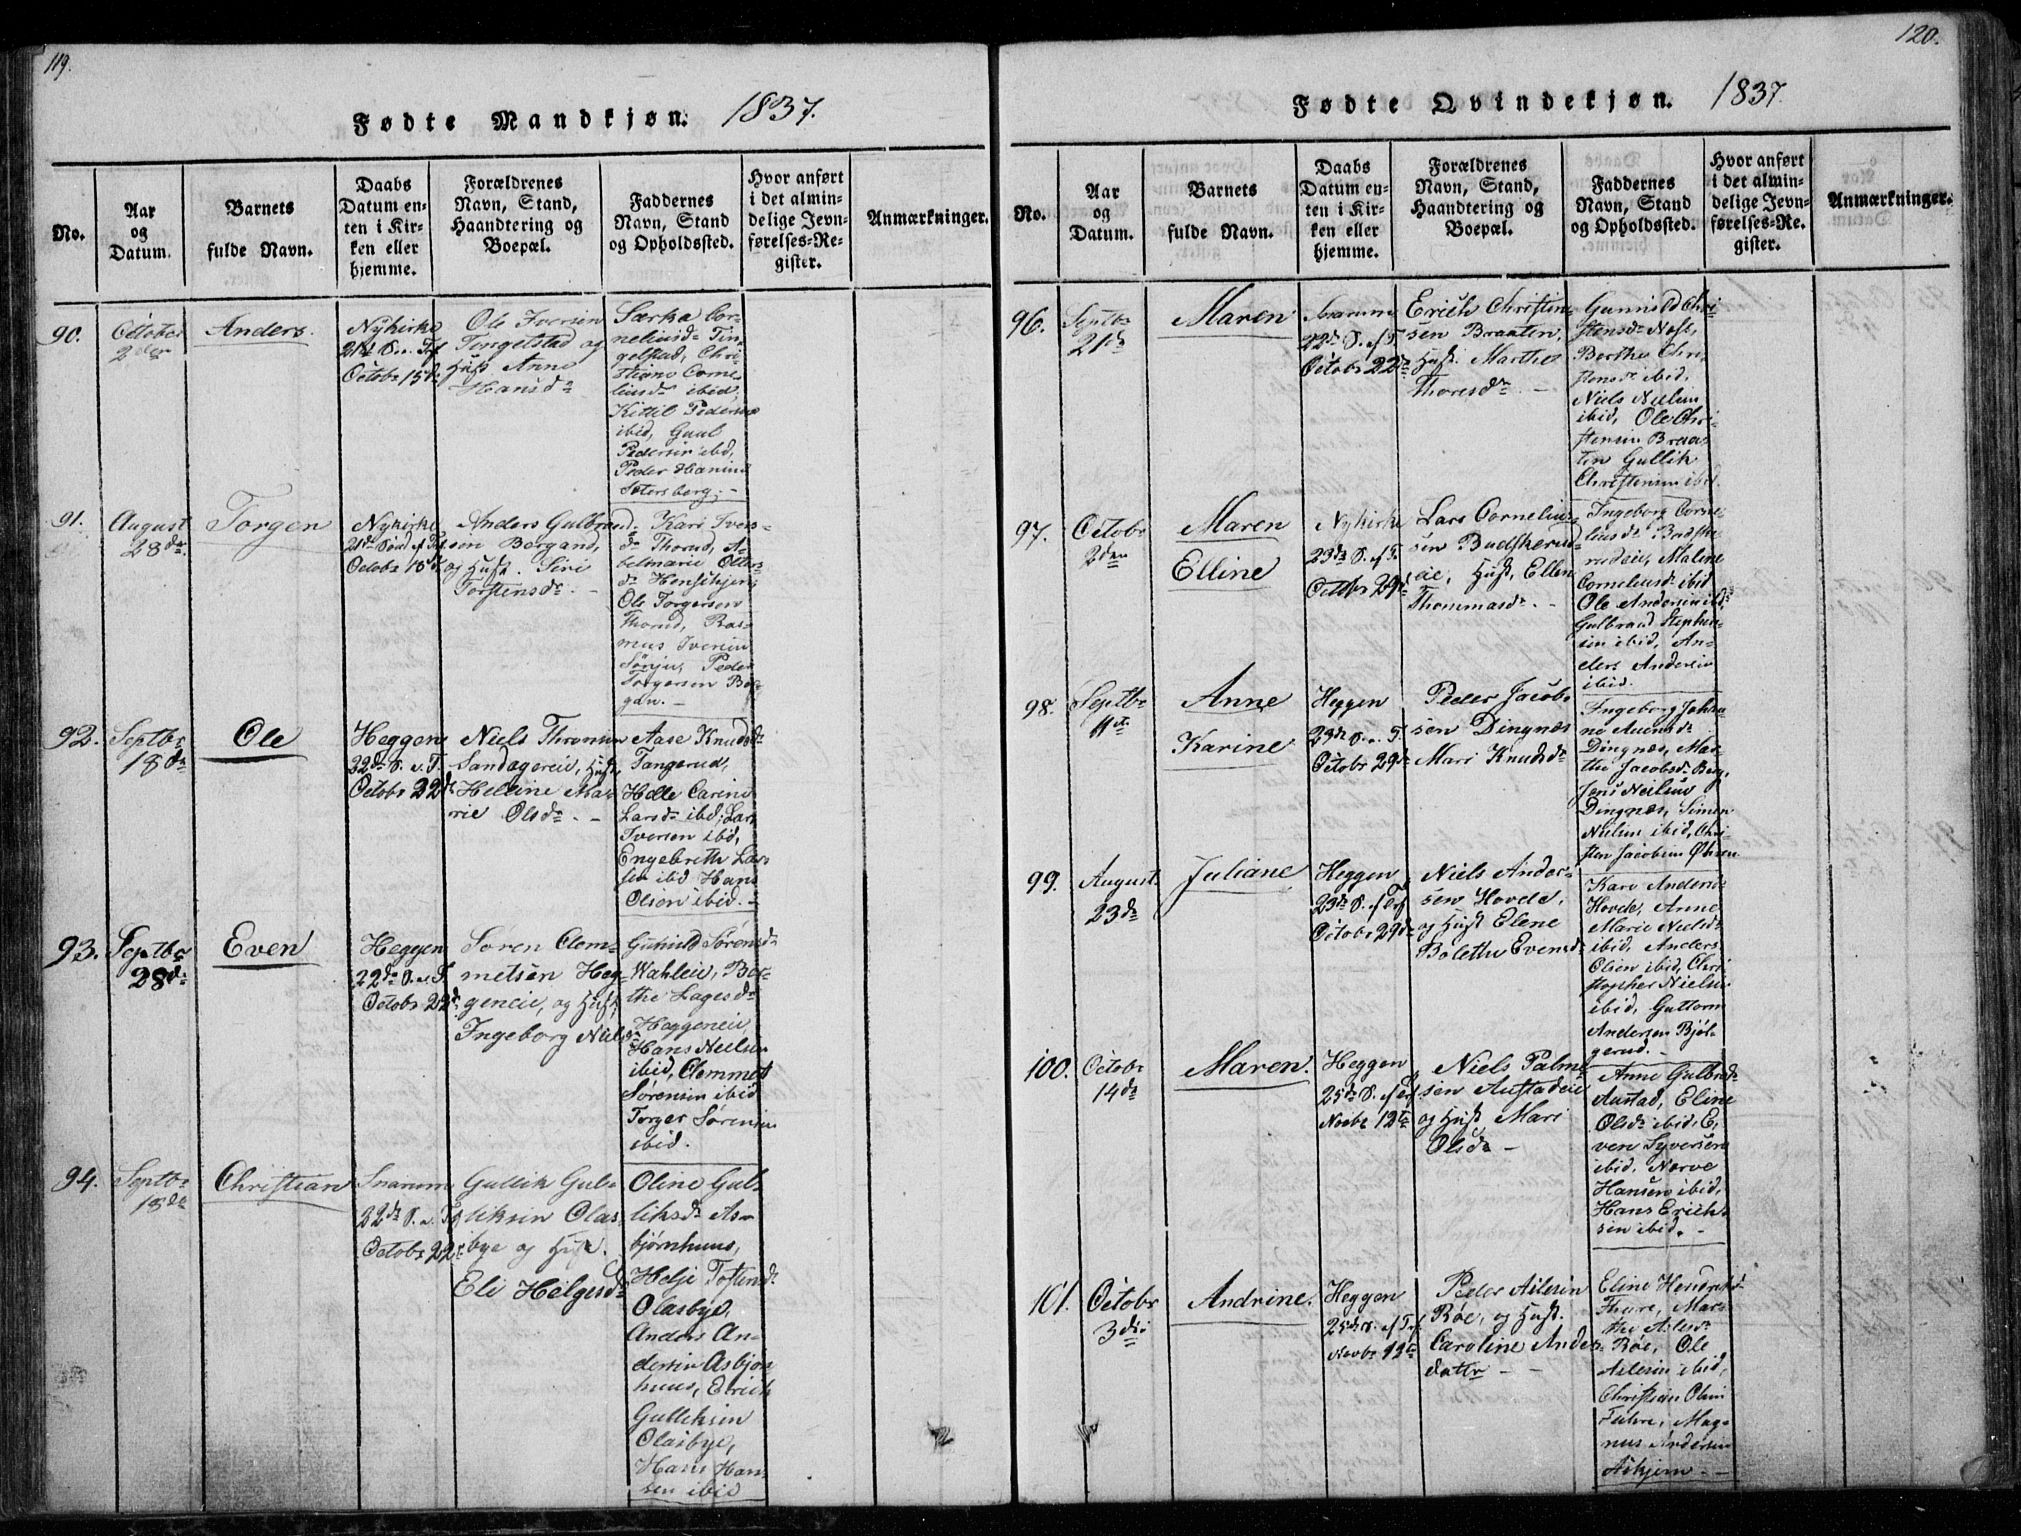 119.
Fødte Mandkjøn. 1837.
No.
Aar
og
Datum.
Barnets
fulde Navn.
Daabs
Datum en-
ten i Kir-
ken eller
hjemme.
Forældrenes
Navn, Stand,
Haandtering og
Boepæl.
Faddernes
Navn, Stand
og Opholdssted.
Hvor anført
i det almin-
delige Jevn-
førelses-Re-
gister.
Anmærkninger.
90.
October
2den
Anders.
Nykirke
21d S. e. Trf
Octobr 15d
Ole Iversen
Tongelstad og
Hust. Anne
Hansdr
Særka Cor-
neliusdr Tin-
gelstad, Chri-
stiane Corne-
liusdr ibid,
Kittil Pedersen
ibid, Guul
Pedersen ibid,
Peder Hansen
Sotersberg. -
91.
August
28de
Torgen
Nykirke
21de Sönd ef Trf
Octobr 15d
Anders Gulbrand-
sen Bergand,
og Hust. Siri
Torstensdr. -
Kari Ivers-
dr Thorud, A-
belmarie Olles-
dr
Ole Torgersen
Thorud, Ras-
mus Iversen
Sönju, Peder
Torgersen Ber-
gan. -
92.
Septbr
18de
Ole
Heggen
22de S. e. T.
Octobr 22d
Niels Thronsen
Sandagereie, Hust
Helene Ma-
rie Olsdr. -
Aase Knudsdr
Tangerud,
Helle Carine
Larsdr ibid, Lars
Iversen ibid,
Engebreth Lar-
sen ibid Hans
Olsen ibid. -
93.
Septbr
28de
Even
Heggen
22de S. e. T
Octobr 22d
Søren Clem-
metsen Heg-
geneie, og Hust,
Ingeborg Nielsdr
Gunild Sørensdr
Wahleie, Ber-
the Lagesdr
Heggeneie,
Hans Nielsen
ibid, Clemmet
Sørensen ibid
Torger Sørensen
ibid.
94.
Septbr
18de
Christian
Snarum
22de S. e. Tf
Octobr 22d
Gullik Gul-
liksen Olas-
bye og Hust.
Eli Helgesdr
Oline Gul-
liksdr As-
bjørnhuus,
Helje Tostensdr
Olasbye,
Anders An-
dersen Asbjørn
huus, Erich
Gulliksen
Olasbye,
Hans Han-
sen ibid
120.
Fødte Qvindekjøn. 1837.
No.
Aar
og
Datum.
Barnets
fulde Navn.
Daabs
Datum en-
ten i Kir-
ken eller
hjemme.
Forældrenes
Navn, Stand,
Haandtering og
Boepæl.
Faddernes
Navn, Stand
og Opholdssted.
Hvor anført
i det almin-
delige Jevn-
førelses-Re-
gister.
Anmærkninger.
96.
Septbr
21de
Maren
Snarum
22de S. ef T
Octobr 22de
Erich Christen-
sen Braaten,
Hust. Marthe
Thoresdr. -
Gunild Chri-
stensdr Næss,
Berthe Chri-
stensdr ibid,
Niels Nielsen
ibid, Ole Chri-
stensen Braa-
ten Gullik
Christensen ibid.
97.
Octobr
2den
Maren
Elline
Nykirke
23de S. ef T.
Octobr 29d
Lars Cornelius-
sen Budskerud-
eie, Hust, Ellen
Thommasdr. -
Ingeborg Corne-
liusdr Budske-
rudeie, Maline
Corneliusdr ibid
Ole Andersen ibid,
Gulbrand Stephen-
sen ibid, An-
ders Andersen
ibid.
98.
Septbr
11te
Anne
Karine
Heggen
23de S. e. T.
Octobr 29d
Peder Jacob-
sen Dingnæs
Mari Knudsdr
Ingeborg Johan-
ne
Dingnæs, Mar-
the Jacobsdr Berg,
Jens Nielsen
Dingnæs, Simen
Nielsen ibid, Chri-
sten Jacobsen Øhren
99.
August
23de
Juliane
Heggen
23de S. ef Trf
Octobr 29de
Niels Ander-
sen Hovde,
og Hust Elene
Bolette Evensdr
Kari Andersdr
Hovde, Anne
Marie Nielsdr
ibid, Anders
Olsen ibid, Chri-
stopher Nielsen
ibid, Guttorm
Andersen Bjøl-
gerud. -
100.
Octobr
14de
Maren.
Heggen
25de S. ef Trf
Novbr 12te
Niels Palme-
sen Austadeie
og Hust Mari
Olsdr -
Anne Gulbrdr
Austad, Eline
Olsdr ibid, E-
ven Syversen
ibid. Narve
Hansen ibid,
Hans Erich-
sen ibid. -
101.
Octobr
3die
Andrine.
Heggen
25de S. ef Trf
Novbr 12te
Peder Aslesen
Røe, og Hust.
Caroline Anders-
datter - -
Eline Hendriksdr
Thure, Mar-
the Aslesdr
Røe, Ole
Aslesen ibid,
Christian Olsen
Fuhre, Mag-
nus Andersen
Askjem. - -